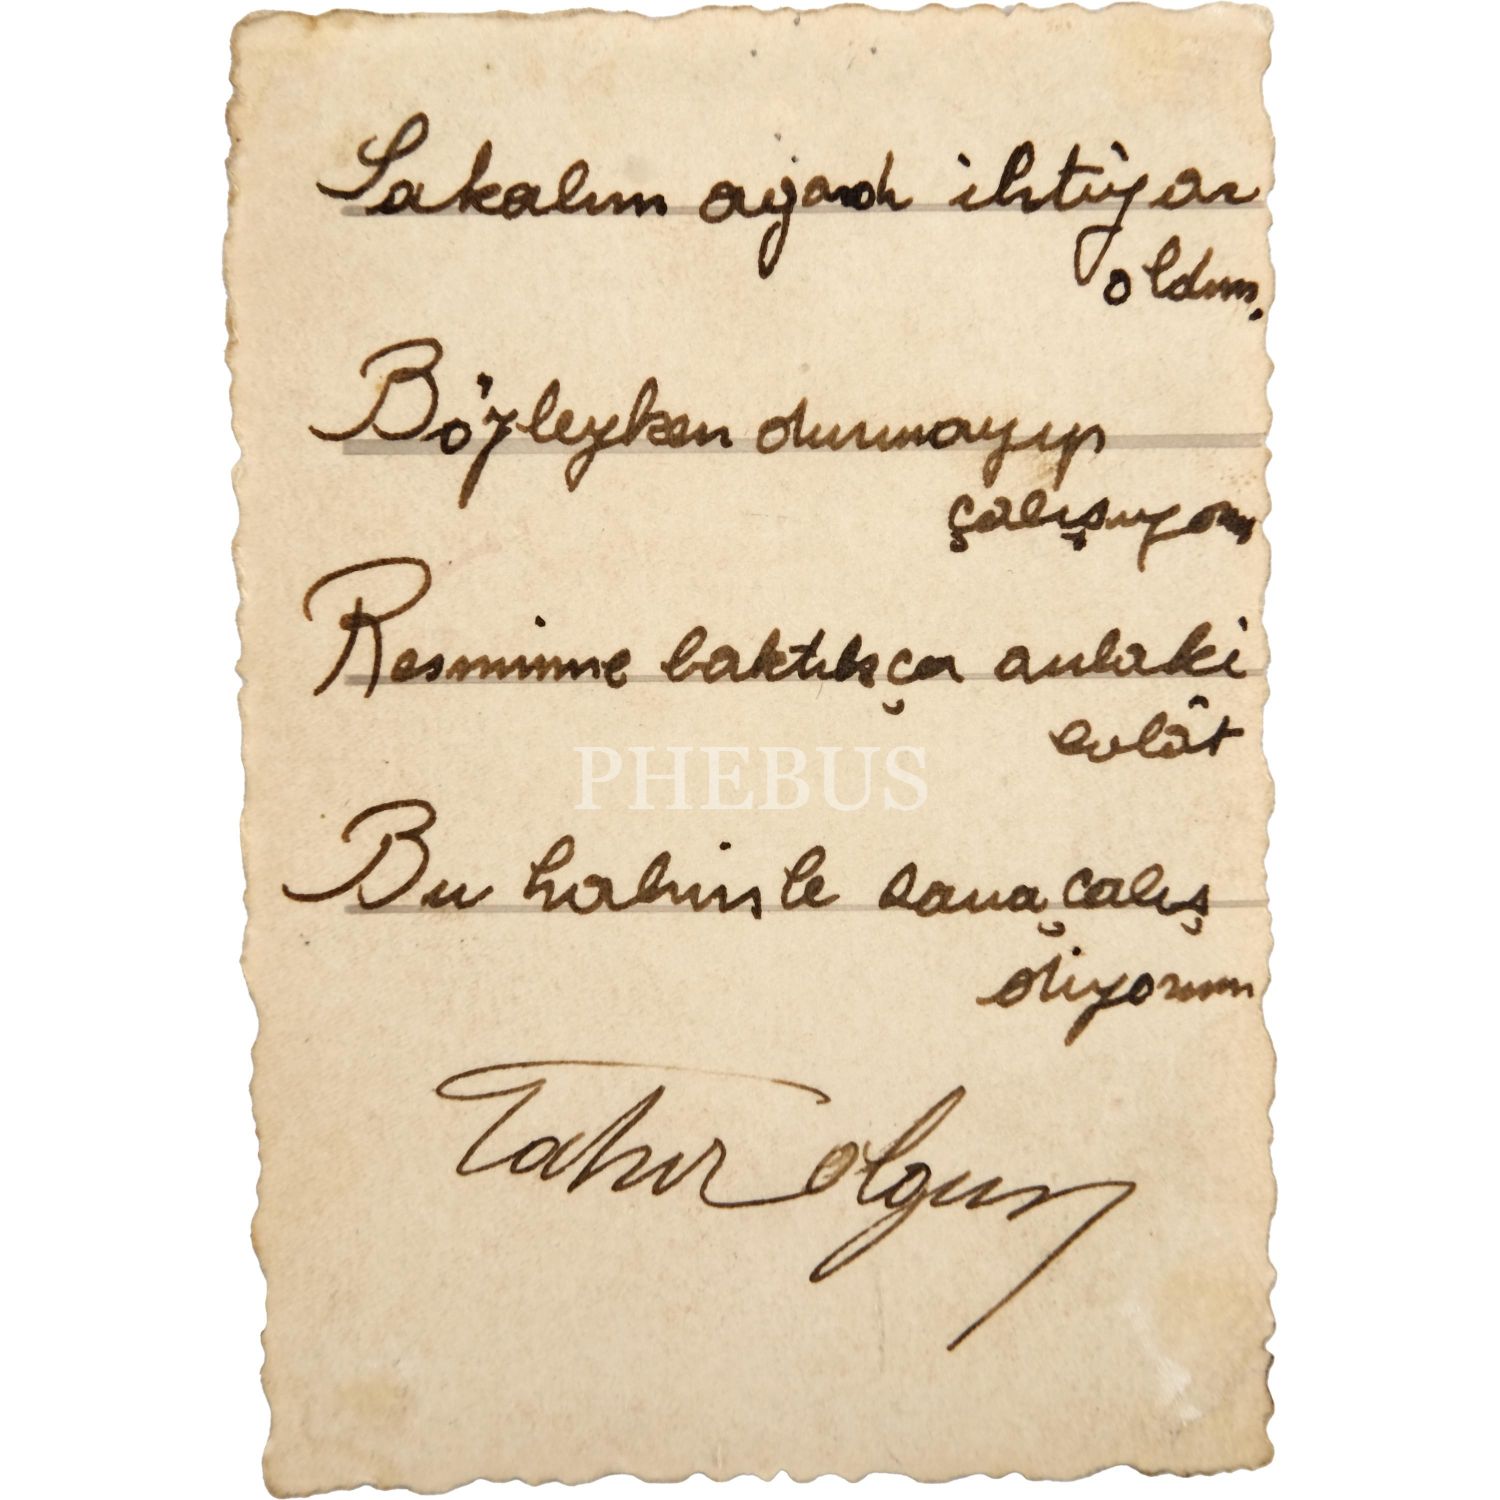 Sakalım ağardı ihtiyar
oldum.
Böyleyken durmayıp
çalışıyorum
Resmime baktıkça anlaki
evlât
Bu halimle sana çalış
diyorum
PHEBUS
Tahir Olgun